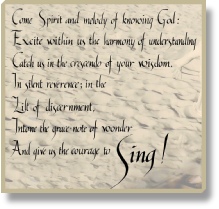 Come Spirit and melody of knowing God:
Excite within us the harmony of understanding
Catch us in the crescendo of your wisdom.
In silent reverence; in the
Lilt of discernment,
Intone the grace-note of wonder
And give us the courage to Sing!